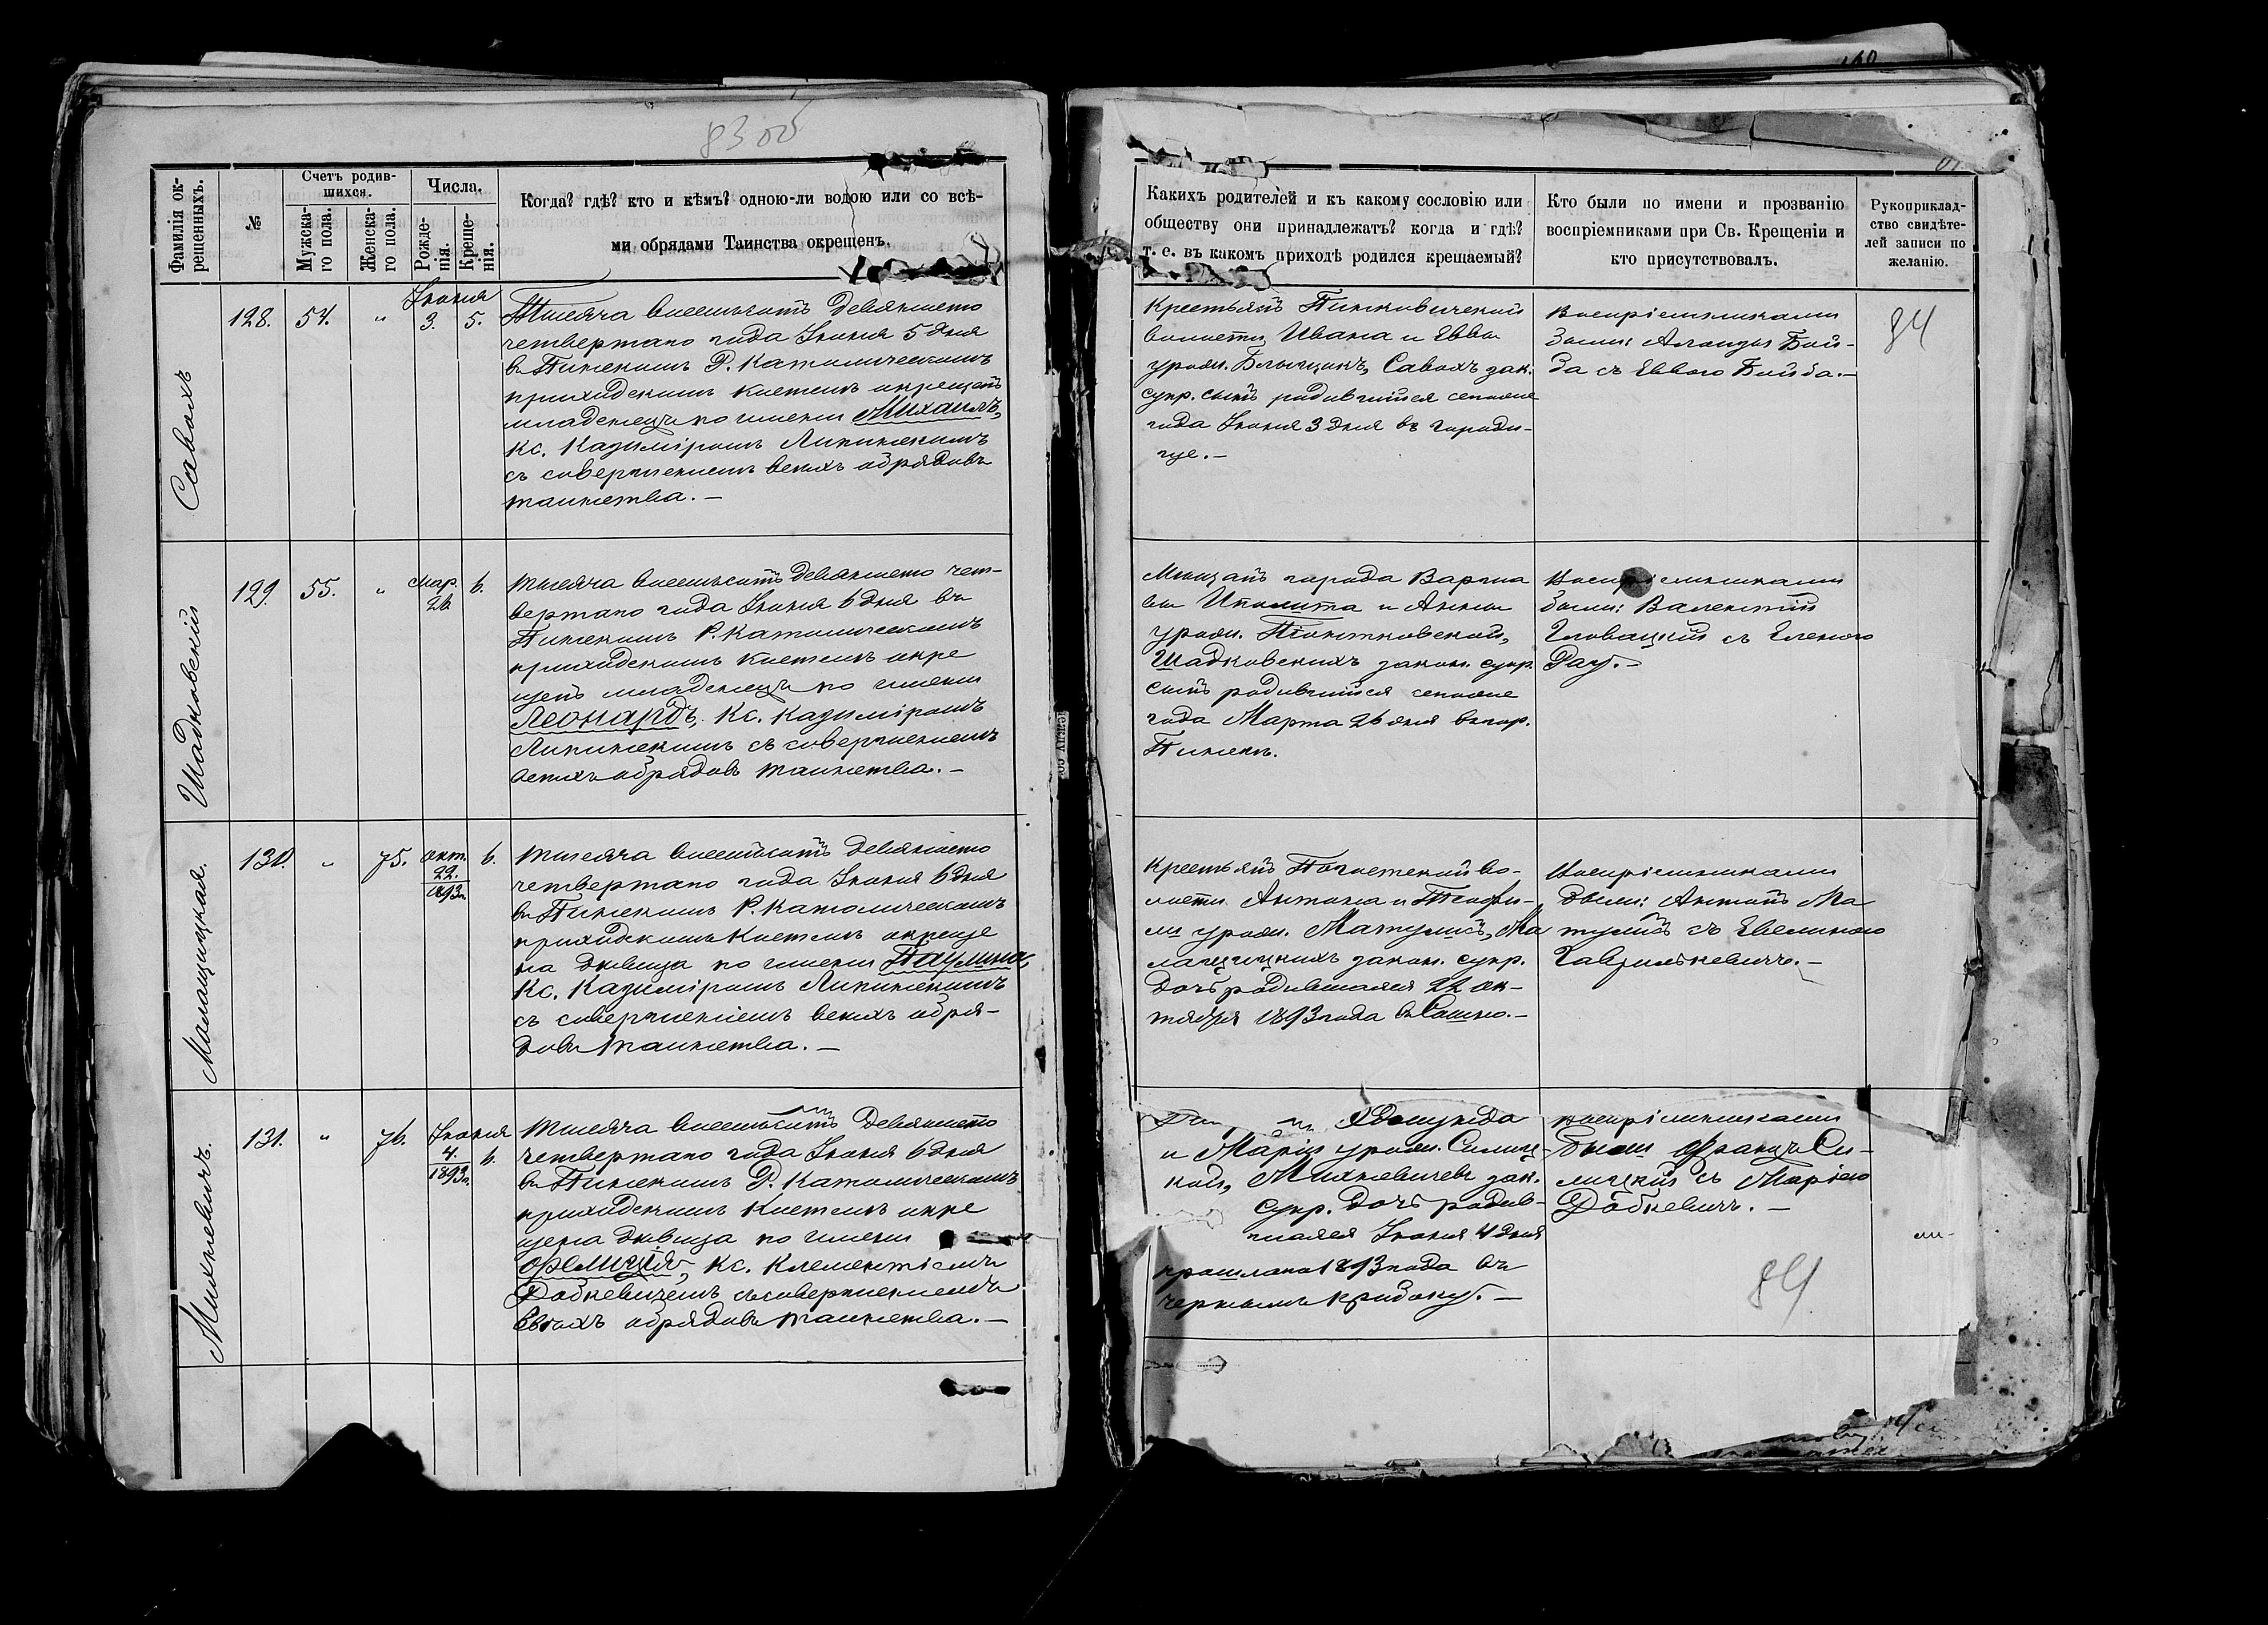 83 об
Фамилія ок-
рещенныхъ.
№
Счетъ родив-
шихся.
Мужска-
го пола.
Женска-
го пола.
Числа.
Рожде-
нія.
Креще-
нія.
Когда? гдѣ? кто и кѣмъ? одною-ли водою или со всѣ-
ми обрядами Таинства окрещенъ.
Савохъ
128.
54.
"
Іюня
3.
5.
Тысяча восемьсотъ девяносто
четвертаго года Іюня 5 дня
въ Пинскомъ Р. Католическомъ
приходскомъ костелѣ окрещенъ
младенецъ по имени Михаилъ,
Кс. Казиміромъ Липинскимъ
съ совершеніемъ всѣхъ обрядовъ
таинства. —
Шадковскій
129.
55.
"
Мар.
26
6.
Тысяча восемьсотъ девяносто чет-
вертаго года Іюня 6 дня въ
Пинскомъ Р. Католическомъ
приходскомъ костелѣ окре
щенъ младенецъ по имени
Леонардъ, Кс. Казиміромъ
Липинскимъ съ совершеніемъ
всѣхъ обрядовъ таинства. —
Малащицкая.
130.
"
75.
Окт.
22.
1893 г.
6.
Тысяча восемьсотъ девяносто
четвертаго года Іюня 6 дня
въ Пинскомъ Р. Католическомъ
приходскомъ костелѣ окреще
на дѣвица по имени Паулина,
Кс. Казиміромъ Липинскимъ
съ совершеніемъ всѣхъ обря-
довъ таинства. —
Михневичъ.
131.
"
76.
Іюня
4.
1893 г.
6.
Тысяча восемьсотъ девяносто
четвертаго года Іюня 6 дня
въ Пинскомъ Р. Католическомъ
приходскомъ костелѣ окре
щена дѣвица по имени
Фелиція, Кс. Клементіемъ
Добкевичемъ съ совершеніемъ
всѣхъ обрядовъ таинства. —
Какихъ родителей и къ какому сословію или
обществу они принадлежатъ? когда и гдѣ?
т. е. въ какомъ приходѣ родился крещаемый?
Кто были по имени и прозванію
воспріемниками при Св. Крещеніи и
кто присутствовалъ.
Рукоприклад-
ство свидѣте-
лей записи по
желанію.
Крестьянъ Пинковичской
волости Ивана и Еввы
урожд. Савохъ зак.
супр. сынъ родившійся сего же
года Іюня 3 дня въ Городи-
ще. —
Воспріемниками
были: Бой-
да съ Еввою Бойда. —
84
Мѣщанъ города Варша
вы Иполита и Анны
урожд. Піонтковской,
Шадковскихъ закон. супр.
сынъ родившійся сего же
года Марта 26 дня въ гор.
Пинскѣ.
Воспріемниками
были: Валентій
Гловацкій съ Еленою
Рау. —
Крестьянъ Погостской во-
лости Антона и Теофи-
ли урожд. Матулисъ, Ма
лащицкихъ закон. супр.
дочь родившаяся 22 ок-
тября 1893 года въ Сошно. —
Воспріемниками
были: Антонъ Ма
тулисъ съ Евелиною
Гаврилькевичъ. —
Эдмунда
и Маріи урожд. Силиц-
кой, Михневичевъ зак.
супр. дочь родив-
шаяся Іюня 4 дня
прошлаго 1893 года въ
Воспріемниками
были Францъ Си-
лицкій съ Маріею
Добкевичъ. —
84